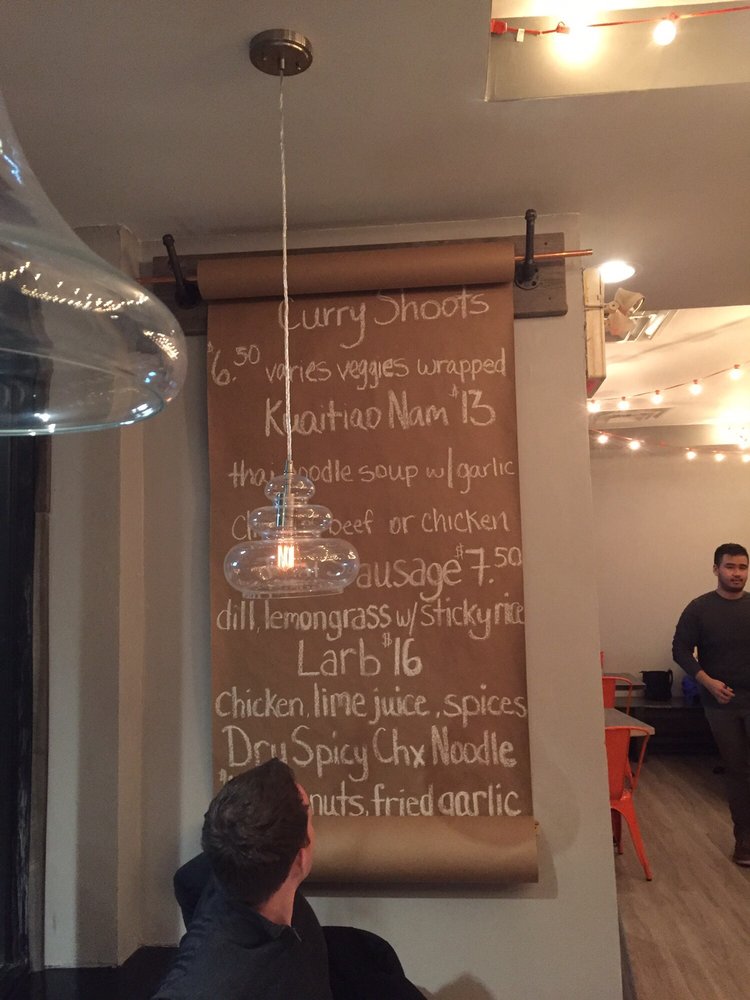 Curry Shoots
$6.50 varies veggies wrapped
Kuaitiao Nam $13
thai noodle soup w/garlic
beef or chicken
$7.50
dill, lemongrass w/sticky rice
Larb $16
Chicken, lime juice, spices
Dry Spicy Chx Noodle
fried garlic